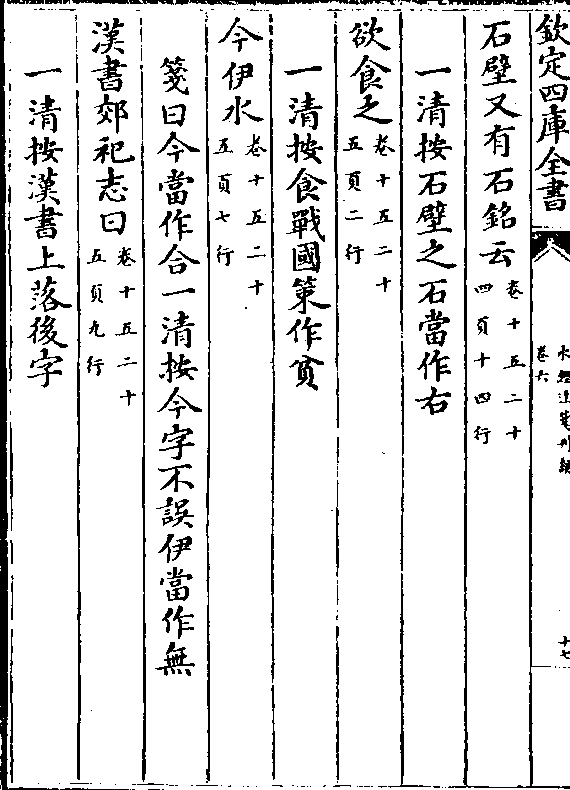 欽定四庫全書
水經注箋刊誤
卷六
十七
石壁又有石銘云卷十五二十四頁十四行
一清按石壁之石當作右
欲食之卷十五二十五頁二行
一清按食戰國策作貧
今伊水卷十五二十五頁七行
箋曰今當作合一清按今字不誤伊當作無
漢書郊祀志曰卷十五二十五頁九行
一清按漢書上落後字